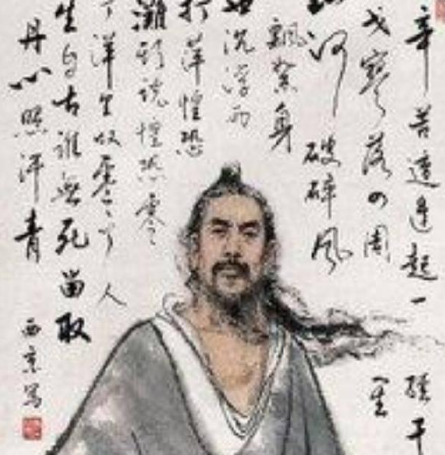 辛苦遭逢起一經干
戈寥落四周星
河破碎风
飄絮身
世沉浮雨
打萍惶恐
灘頭说惶恐零
丁洋里叹零丁人
生自古谁無死留取
丹心照汗青
西京写